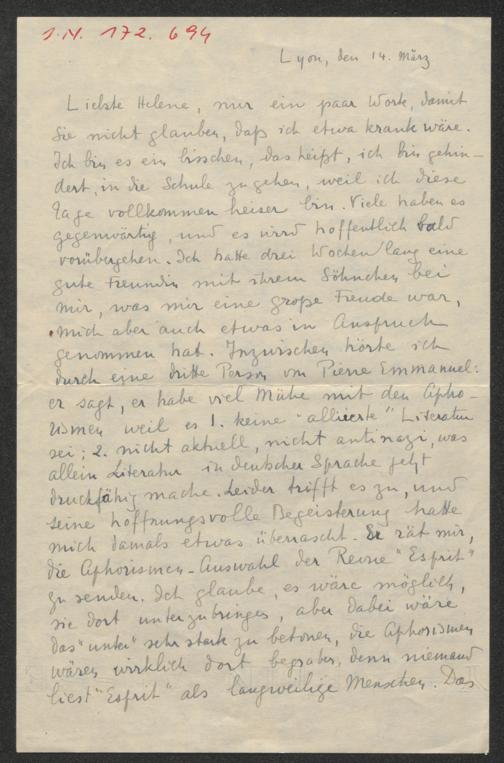 I.N. 172.694
Lyon, den 14. März
Liebste Helene, nur ein paar Worte, damit
Sie nicht glauben, daß ich etwa krank wäre.
Ich bin es ein bisschen, das heißt, ich bin gehin-
dert, in die Schule zu gehen, weil ich diese
Tage vollkommen heiser bin. Viele haben es
gegenwärtig, und es wird hoffentlich bald
vorübergehen. Ich hatte drei Wochen lang eine
gute Freundin mit ihrem Söhnchen bei
mir, was mir eine große Freude war,
mich aber auch etwas in Anspruch
genommen hat. Inzwischen hörte ich
durch eine dritte Person von Pierre Emmanuel:
er sagt, er habe viel Mühe mit den Apho-
rismen weil es 1. keine "alliierte" Literatur
sei; 2. nicht aktuell, nicht antinazi, was
allein Literatur in deutscher Sprache jetzt
druckfähig mache. Leider trifft es zu, und
seine hoffnungsvolle Begeisterung hatte
mich damals etwas überrascht. Er rät mir,
die Aphorismen-Auswahl der Revue "Esprit"
zu senden. Ich glaube, es wäre möglich,
sie dort unterzubringen, aber dabei wäre
das "unter" sehr stark zu betonen, die Aphorismen
wären wirklich dort begraben, denn niemand
liest "Esprit" als langweilige Menschen. Das